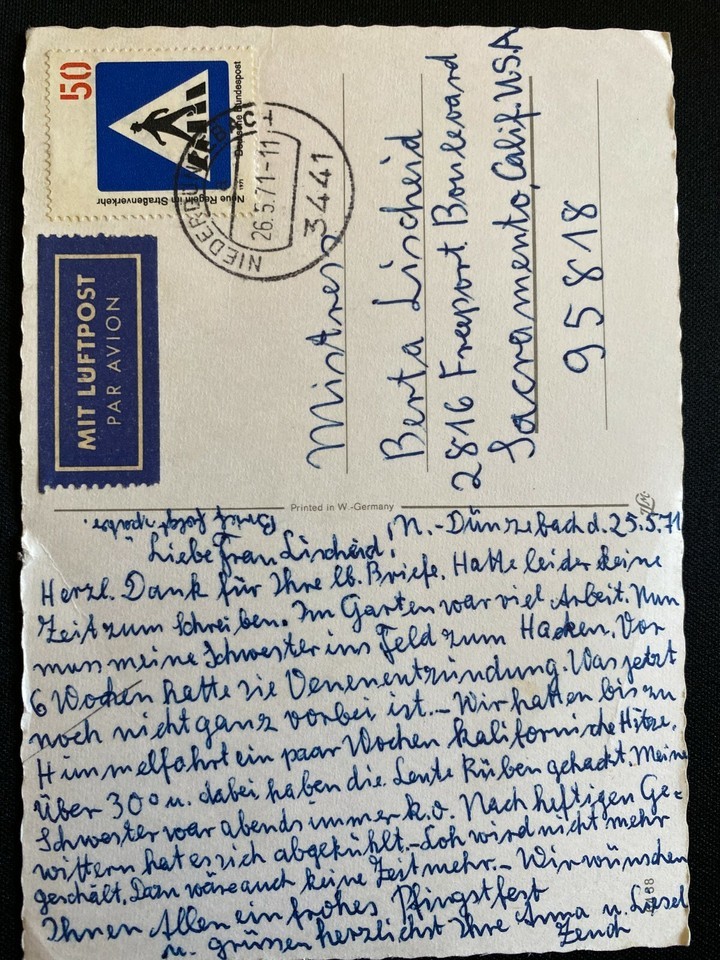 50
Deutsche Bundespost
1971
Neue Regeln im Straßenverkehr
26.5.71-11
3441
MIT LUFTPOST
PAR AVION
Mistress
Berta Lischeid
2816 Freeport Boulevard
Sacramento, Calif. U.S.A
95818
Printed in W.-Germany
Brief folgt später.
N.-Dünzebach d. 25.5.71
Liebe Frau Lischeid!
Herzl. Dank für Ihre lb. Briefe. Hatte leider keine
Zeit zum Schreiben. Im Garten war viel Arbeit. Nun
muss meine Schwester ins Feld zum Hacken. Vor
6 Wochen hatte sie Venenentzündung. Was jetzt
noch nicht ganz vorbei ist. – Wir hatten bis zu
Himmelfahrt ein paar Wochen kalifornische Hitze.
Über 30° u. dabei haben die Leute Rüben gehackt. Meine
Schwester war abends immer k.o. Nach heftigen Ge=
wittern hat es sich abgekühlt. – wird nicht mehr
geschält, Dazu wäre auch keine Zeit mehr. – Wir wünschen
Ihnen Allen ein frohes Pfingstfest
u. grüssen herzlichst Ihre Anna u. Liesel